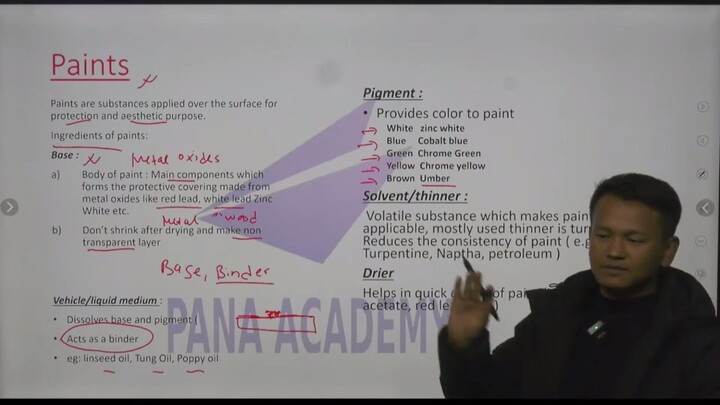 Paints
Paints are substances applied over the surface for
protection and aesthetic purpose.
Ingredients of paints:
Base :
Metal oxides
a) Body of paint : Main components which
forms the protective covering made from
metal oxides like red lead, white lead Zinc
White etc.
Metal wood
b) Don't shrink after drying and make non
transparent layer
Base, Binder
Vehicle/liquid medium :
• Dissolves base and pigment (
• Acts as a binder
• eg: linseed oil, Tung Oil, Poppy oil
Pigment :
• Provides color to paint
White zinc white
Blue Cobalt blue
Green Chrome Green
Yellow Chrome yellow
Brown Umber
Solvent/thinner :
Volatile substance which makes
applicable, mostly used thinner is
Reduces the consistency of paint ( e.g
Turpentine, Naptha, petroleum )
Drier
Helps in quick of
acetate, red
PANA ACADEMY